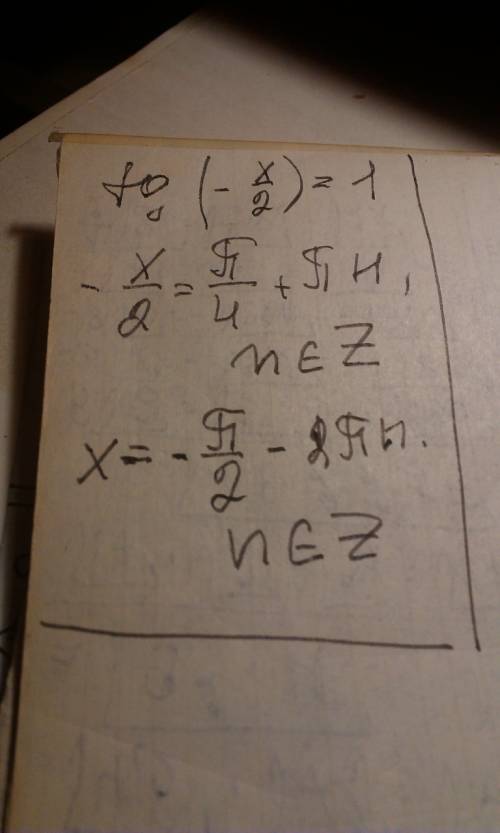 tg (- x/2) = 1
- x/2 = π/4 + πn,
n ∈ Z
x = - π/2 - 2πn.
n ∈ Z